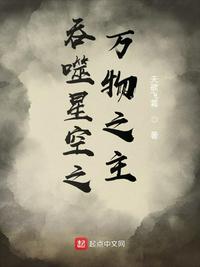 吞噬星空之
万物之主
天欲飞霜 著
起点中文网